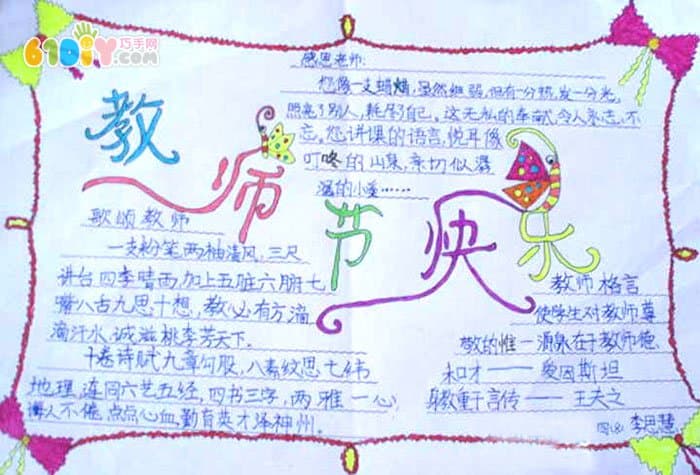 61DIY巧手网
.com
感恩老师:
您像一支蜡烛,虽然细弱,但有一分热,发一分光,
照亮了别人,耗尽了自己,这无私的奉献,令人永志,不
忘,您讲课的语言,悦耳像
叮咚的山泉,亲切似潺
潺的小溪……
教师节快乐
歌颂教师
一支粉笔两袖清风,三尺
讲台四季晴雨,加上五脏六腑七
嘴八舌九思十想,教必有方滴
滴汗水,诚滋桃李芳天下.
十卷诗赋九章勾股,八索纹思七纬
地理,连同六艺五经,四书三字,两雅一心
诲人不倦,点点心血,勤育英才泽神州.
教师格言
使学生对教师尊
敬的惟一源泉在于教师德
和才——爱因斯坦
身教重于言传——王夫之
李思慧